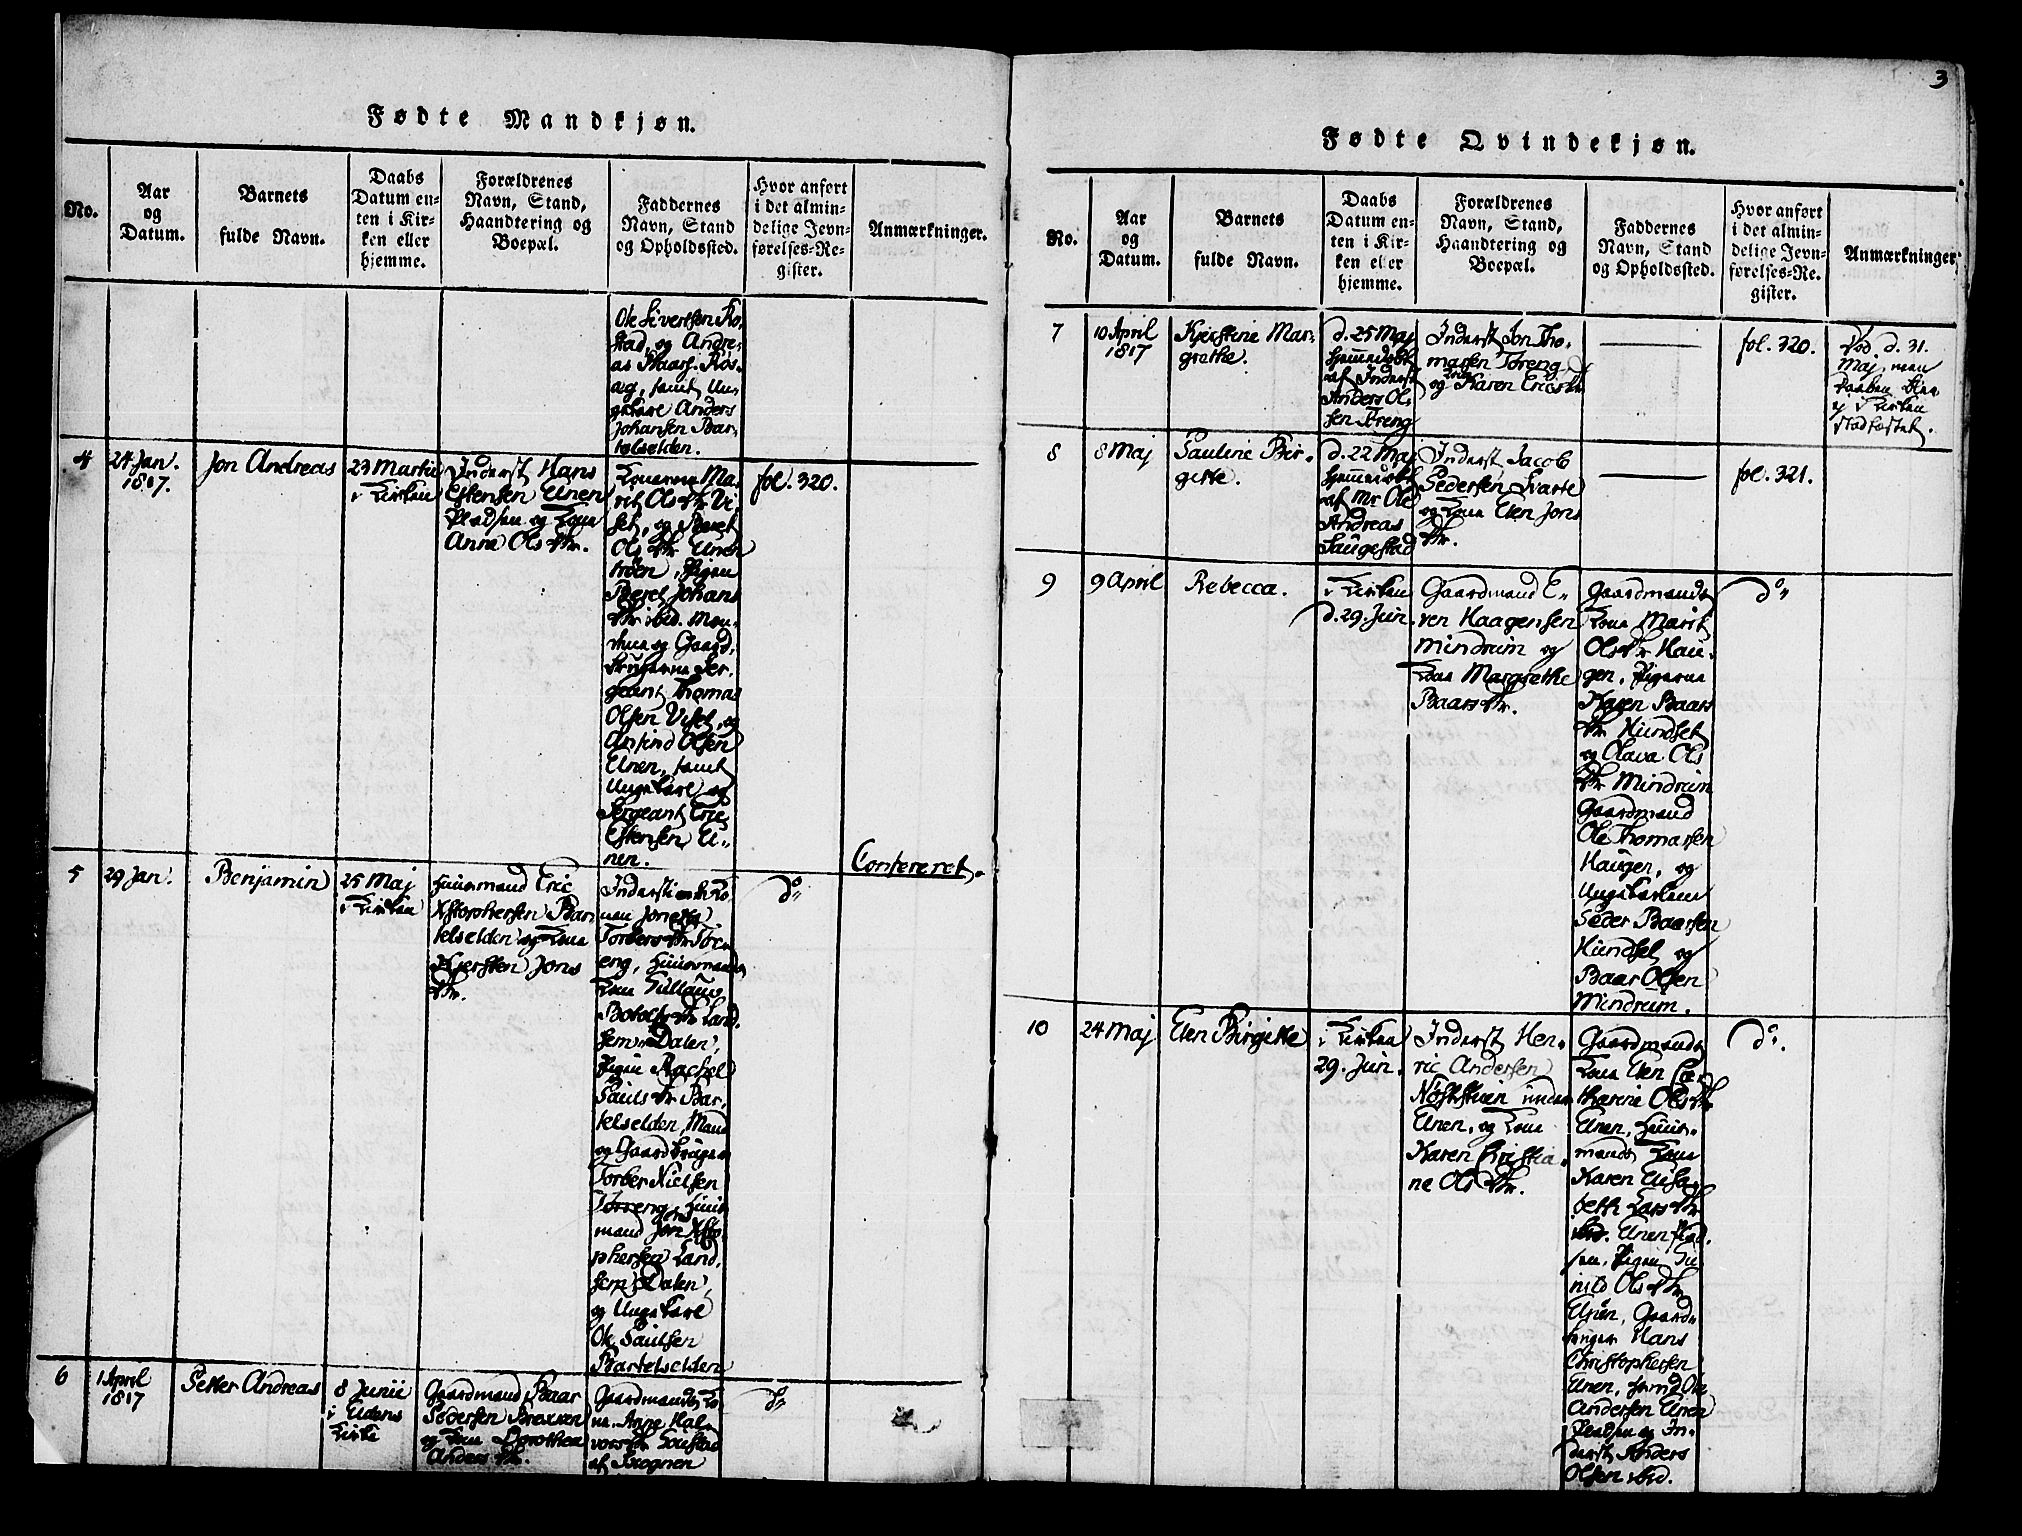 3
Fødte Mandkjøn.
No.
Aar
og
Datum.
Barnets
fulde Navn.
Daabs
Datum en-
ten i Kir-
ken eller
hjemme.
Forældrenes
Navn, Stand,
Haandtering og
Boepæl.
Faddernes
Navn, Stand
og Opholdssted.
Hvor anført
i det almin-
delige Jevn-
førelses-Re-
gister.
Anmærkninger.
Ole Sivertsen Ro-
stad, og Andre-
as Baars. Ros-
æg, samt Un-
gekarl Anders
Johansen Bar-
telselden.
4
24 Jan.
1817.
Jon Andreas
23 Martii
i Kirken
Inderst Hans
Estensen Unen
Pladsen og Kone
Anne Ols Dtr.
Konerne Ma-
ret Ols Dtr Vi-
set, og Beret
Ols Dtr Unen
trøen, Pigen
Beret Johans
Dtr ibid. Mæn-
dene og Gaard-
brugerne Ser-
geant Thomas
Olsen Viset, og
Arfind Olsen
Unen, samt
Ungekarl og
Sergeant Eric
Estensen U-
nen.
fol. 320.
5
29 Jan.
Benjamin
25 Maj
i Kirken
Huusmand Eric
Xstophersen Bar-
telselden og Kone
Kjersten Jons
Dtr.
Inderst
Konen Jonetta
Torbers Dtr Tør-
eng, Huusmands
Kone Gullaug
Botolfs Dtr Land-
sem Dalen,
Pigen Rachel
Pauls Dtr Bar-
telselden, Mænd
og Gaardbruger
Torber Nielsen
Tørreng, Huus-
mand Jon Xsto-
phersen Land-
sem Dalen,
og Ungekarl
Ole Paulsen
Bartelselden
do
Confereret.
6
1 April
1817
Petter Andreas
8 Junii
i Eidens
Kirke
Gaardmand Baar
Pedersen Brexxen
og Kone Dorothea
Anders Dtr.
Gaardmands Ko-
ne Anne Hal-
vors Dtr Goustad
af Sognen
do
Fødte Qvindekjøn.
No.
Aar
og
Datum.
Barnets
fulde Navn.
Daabs
Datum en-
ten i Kir-
ken eller
hjemme.
Forældrenes
Navn, Stand,
Haandtering og
Boepæl.
Faddernes
Navn, Stand
og Opholdssted.
Hvor anført
i det almin-
delige Jevn-
førelses-Re-
gister.
Anmærkninger.
7
10 April
1817
Kjerstine Mar-
grethe.
d. 25 Maj
hjemmedøbt
af Inderst
Anders Ol-
sen Treng
Inderst Jon Tho-
masen Tøreng
og Kone Karen Erics Dtr
fol. 320.
Død d. 31.
Maj, men
Daaben blev
ej i Kirken
stadfæstet.
8
8 Maj
Pauline Bir-
gitte.
d. 22 Maj
hjemmedøbt
af Mr Ole
Andreas
Haugestad
Inderst Jacob
Pedersen Svarte
og Kone Elen Jons
Dtr.
fol. 321.
9
9 April
Rebecca.
i Kirken
d. 29. Jun.
Gaardmand E-
ven Haagensen
Mindrum og
Kone Margrethe
Baars Dtr.
Gaardmands
Kone Marit
Ols Dtr Hau-
gen, Pigerne
Karen Baars
Dtr Hundset
og Olava Ols
Dtr Mindrum
Gaardmand
Ole Thomassen
Haugen, og
Ungekarlene
Peder Baarsen
Hundset og
Baar Olsen
Mindrum.
do
10
24 Maj
Elen Birgitte
i Kirken
29. Jun.
Inderst Hen-
ric Andersen
Nøststuen under
Unen, og Kone
Karen Christia-
ne Ols Dtr.
Gaardmands
Kone Elen Ca-
tharine Ols Dtr
Unen, Huus-
mands Kone
Karen Elisa-
beth Lars Dtr
ibid. Unen Plad-
sen, Pigen Gu-
nild Ols Dtr
Unen, Gaard-
bruger Hans
Christophersen
Unen, samt Ole
Andersen Unen
Pladsen og In-
derst Anders
Olsen ibid.
do.